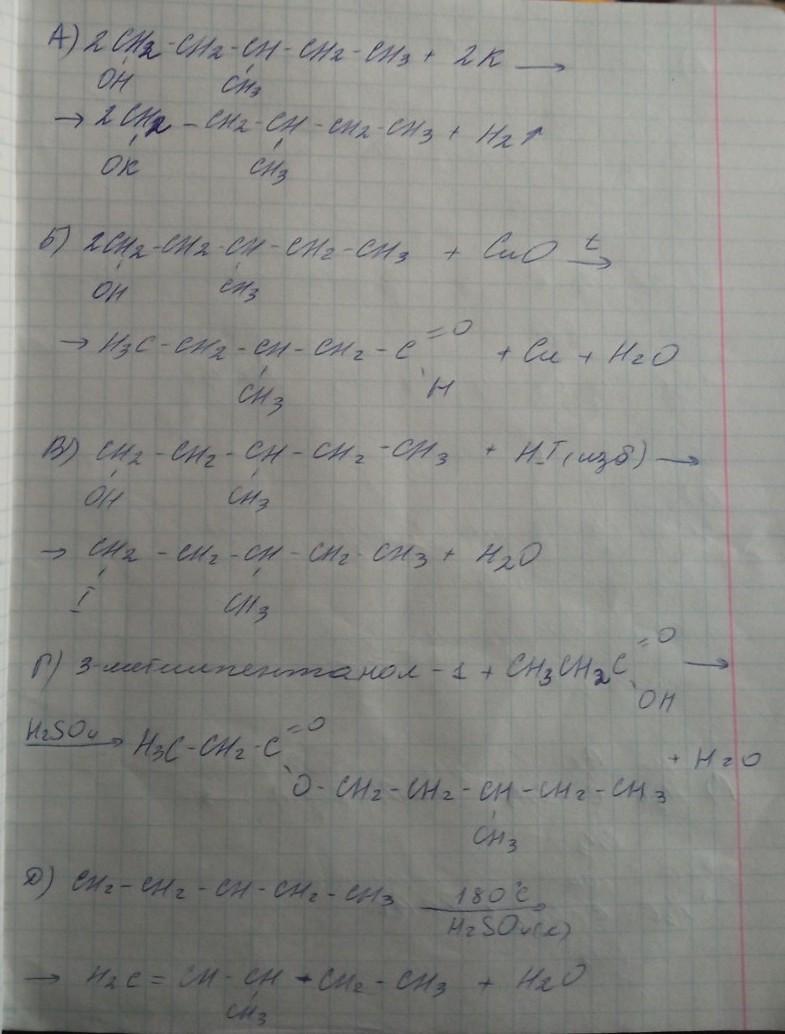 А) 2CH2-CH2-CH-CH2-CH3 + 2K →
OH CH3
→ 2CH2-CH2-CH-CH2-CH3 + H2↑
OK CH3
Б) 2CH2-CH2-CH-CH2-CH3 + CuO t→
OH CH3
→ H3C-CH2-CH-CH2-C=O + Cu + H2O
CH3 H
В) CH2-CH2-CH-CH2-CH3 + HI(изб) →
OH CH3
→ CH2-CH2-CH-CH2-CH3 + H2O
I CH3
Г) 3-метилпентанол-1 + CH3CH2C=O →
OH
H2SO4→ H3C-CH2-C=O + H2O
O-CH2-CH2-CH-CH2-CH3
CH3
Д) CH2-CH2-CH-CH2-CH3 180°C
H2SO4(к)
→ H2C=CH-CH-CH2-CH3 + H2O
CH3